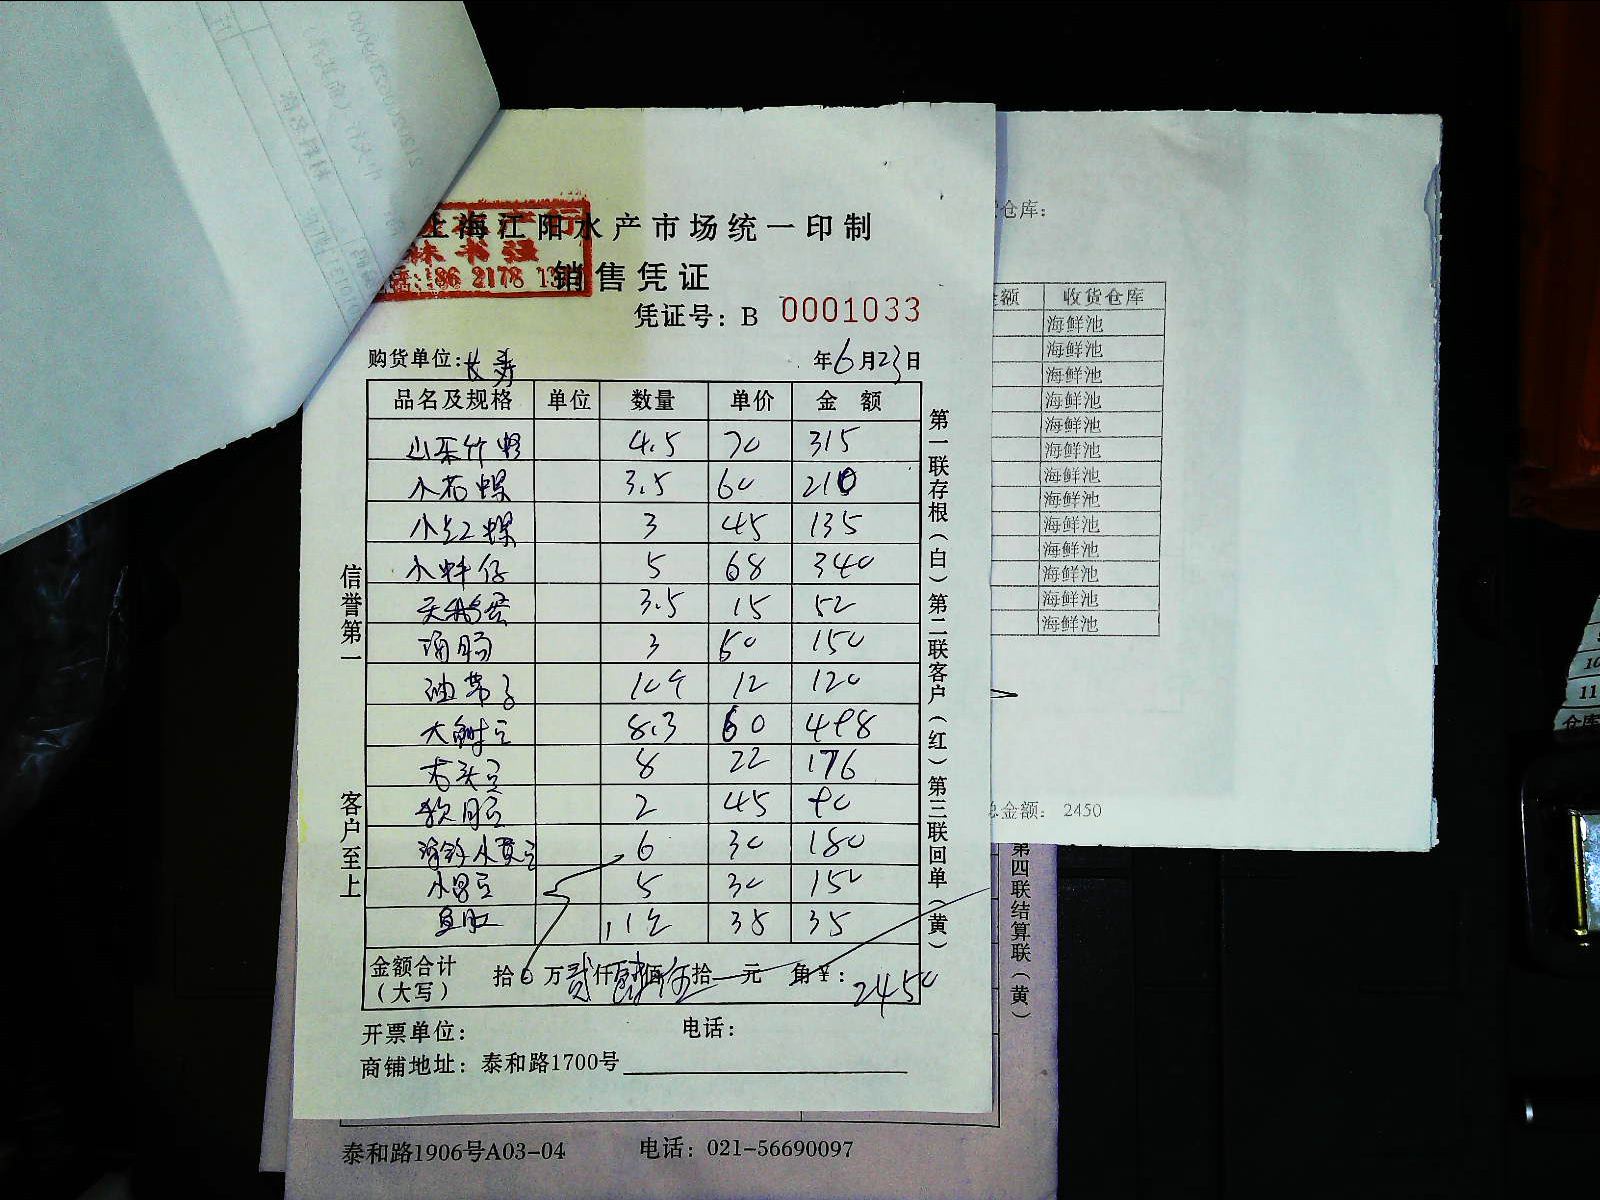 上海江阳水产市场统一印制
林书强
186 2178 13
销售凭证
凭证号：B 0001033
购货单位：长寿 年6月23日
品名及规格 单位 数量 单价 金额
山东竹蛏 4.5 70 315
小花螺 3.5 60 210
小红螺 3 45 135
小蚌仔 5 68 340
天鹅蛋 3.5 15 52
海肠 3 50 150
油带子 10个 12 120
大鲜贝 8.3 60 498
石头贝 8 22 176
2 45 90
小黄贝 6 30 180
5 30 150
鱼肚 35 35
金额合计（大写） 拾0万贰仟肆佰伍拾元角¥：2450
开票单位： 电话：
商铺地址：泰和路1700号
信誉第一
客户至上
第一联存根（白）第二联客户（红）第三联回单（黄）
仓库：
金额 收货仓库
海鲜池
海鲜池
海鲜池
海鲜池
海鲜池
海鲜池
海鲜池
海鲜池
海鲜池
海鲜池
海鲜池
海鲜池
海鲜池
总金额： 2450
第四联结算联（黄）
泰和路1906号A03-04 电话：021-56690097
10
11
仓库